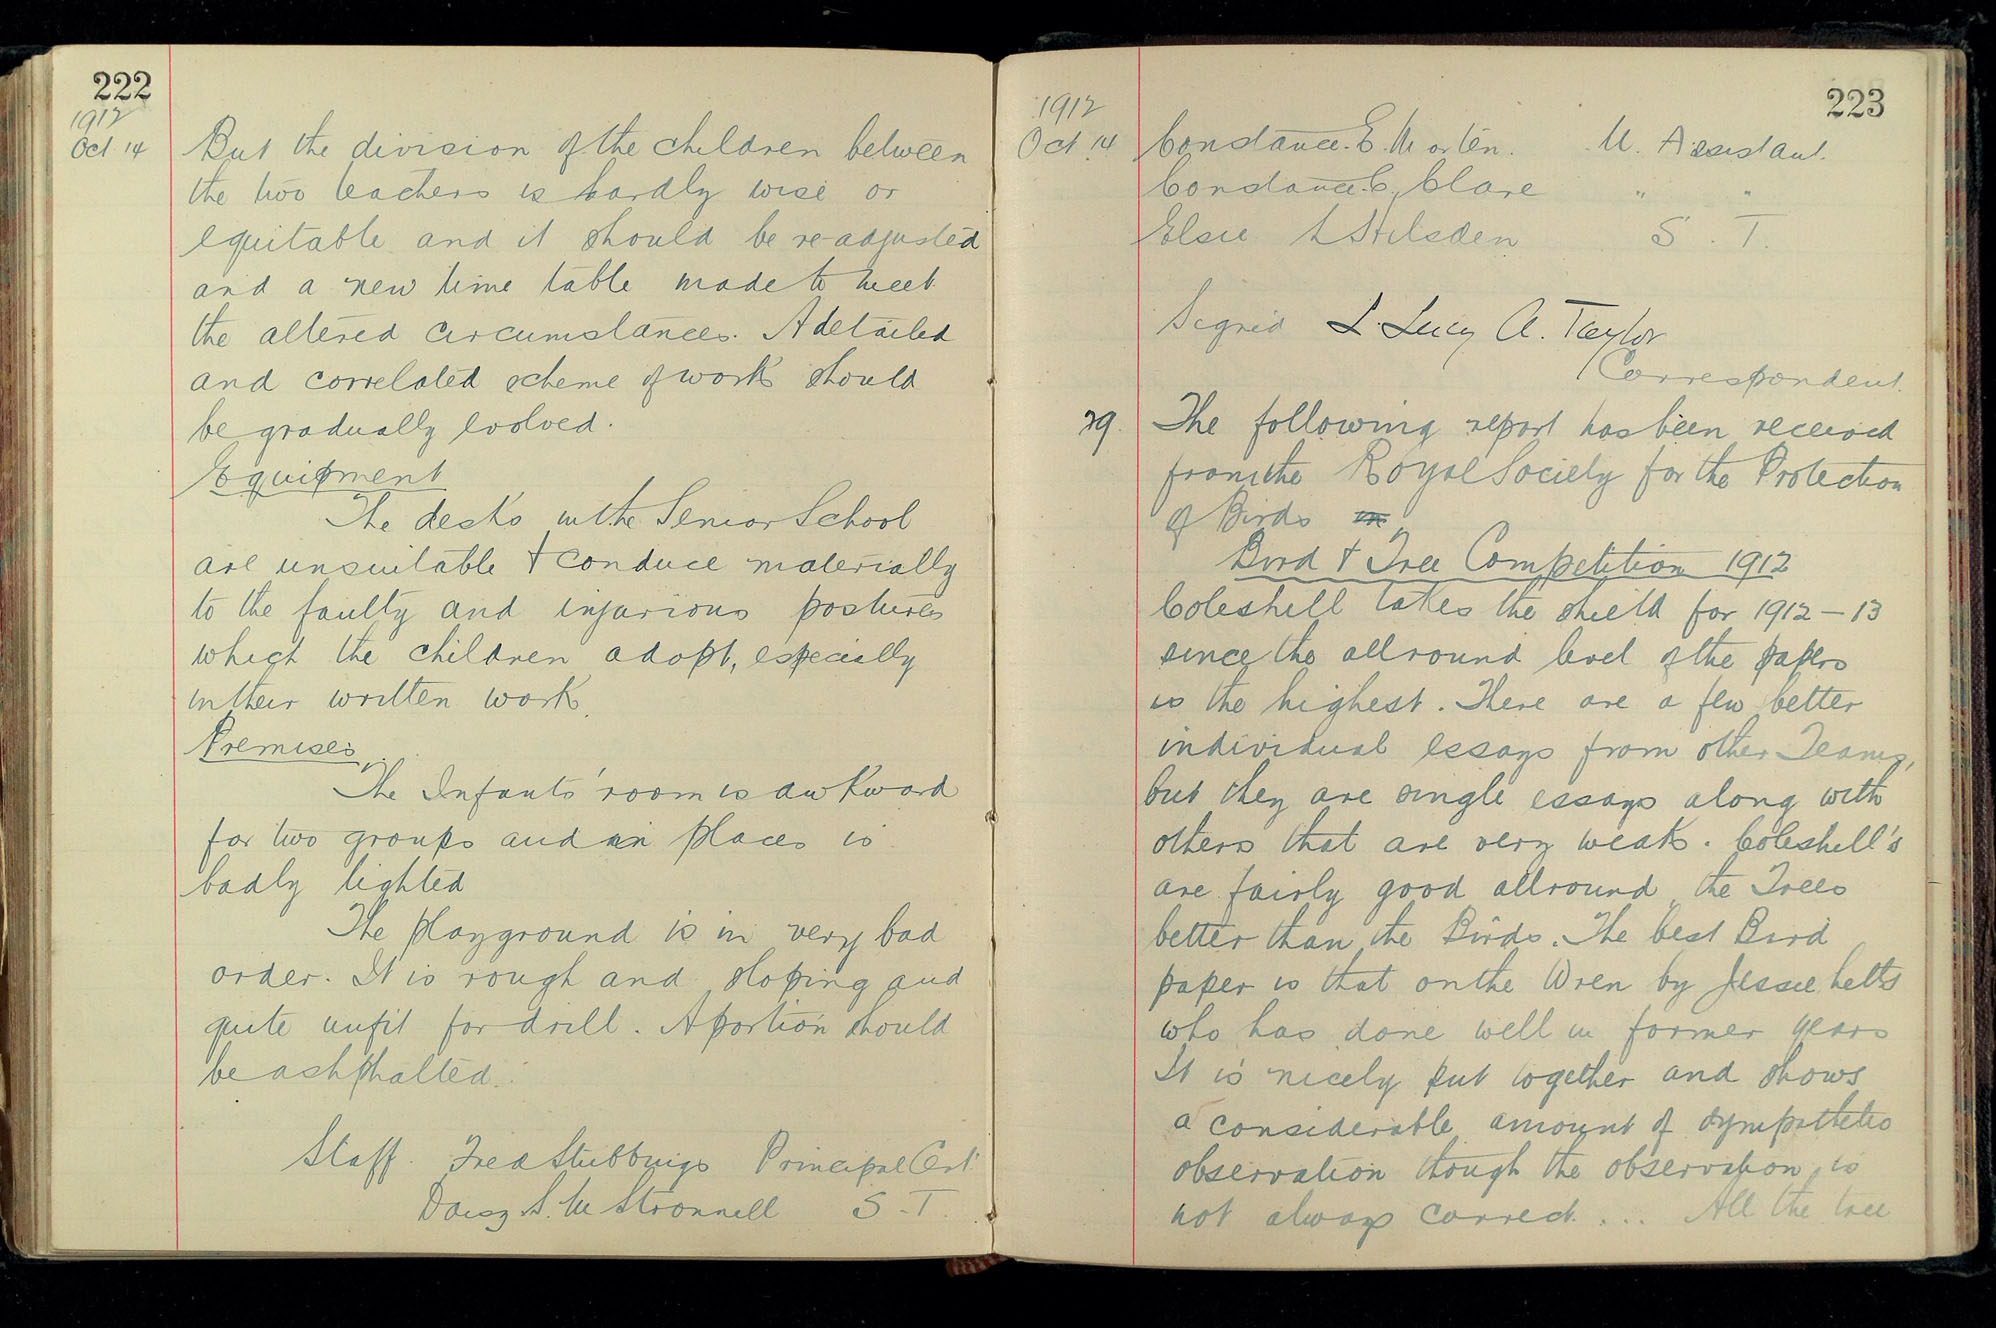 222
1912
Oct 14
But the division of the children between
the two teachers is hardly wise or
equitable and it should be re-adjusted
and a new time table made to meet
the altered circumstances. A detailed
and correlated scheme of work should
be gradually evolved.
Equipment
The desks in the Senior School
are unsuitable & conduce materially
to the faulty and injurious postures
which the children adopt, especially
in their written work.
Premises
The Infants' room is awkward
for two groups and in places is
badly lighted
The playground is in very bad
order. It is rough and sloping and
quite unfit for drill. A portion should
be ashphalted.
Staff. Fred Stubbings Principal Cert
Daisy S. M Stronnell S. T.
223
1912
Oct. 14 Constance. E. Morten. U. Assistant.
Constance. C. Clare " "
Elsie L Hilsden S. T.
Signed L. Lucy A. Taylor
Correspondent.
29. The following report has been received
from the Royal Society for the Protection
of Birds in
Bird & Tree Competition 1912
Coleshill takes the shield for 1912-13
since the allround level of the papers
is the highest. There are a few better
individual essays from other Teams,
but they are single essays along with
others that are very weak. Coleshill's
are fairly good allround, the Trees
better than the Birds. The best Bird
paper is that on the Wren by Jessie
who has done well in former years
It is nicely put together and shows
a considerable amount of sympathetic
observation though the observation is
not always correct.... All the tree